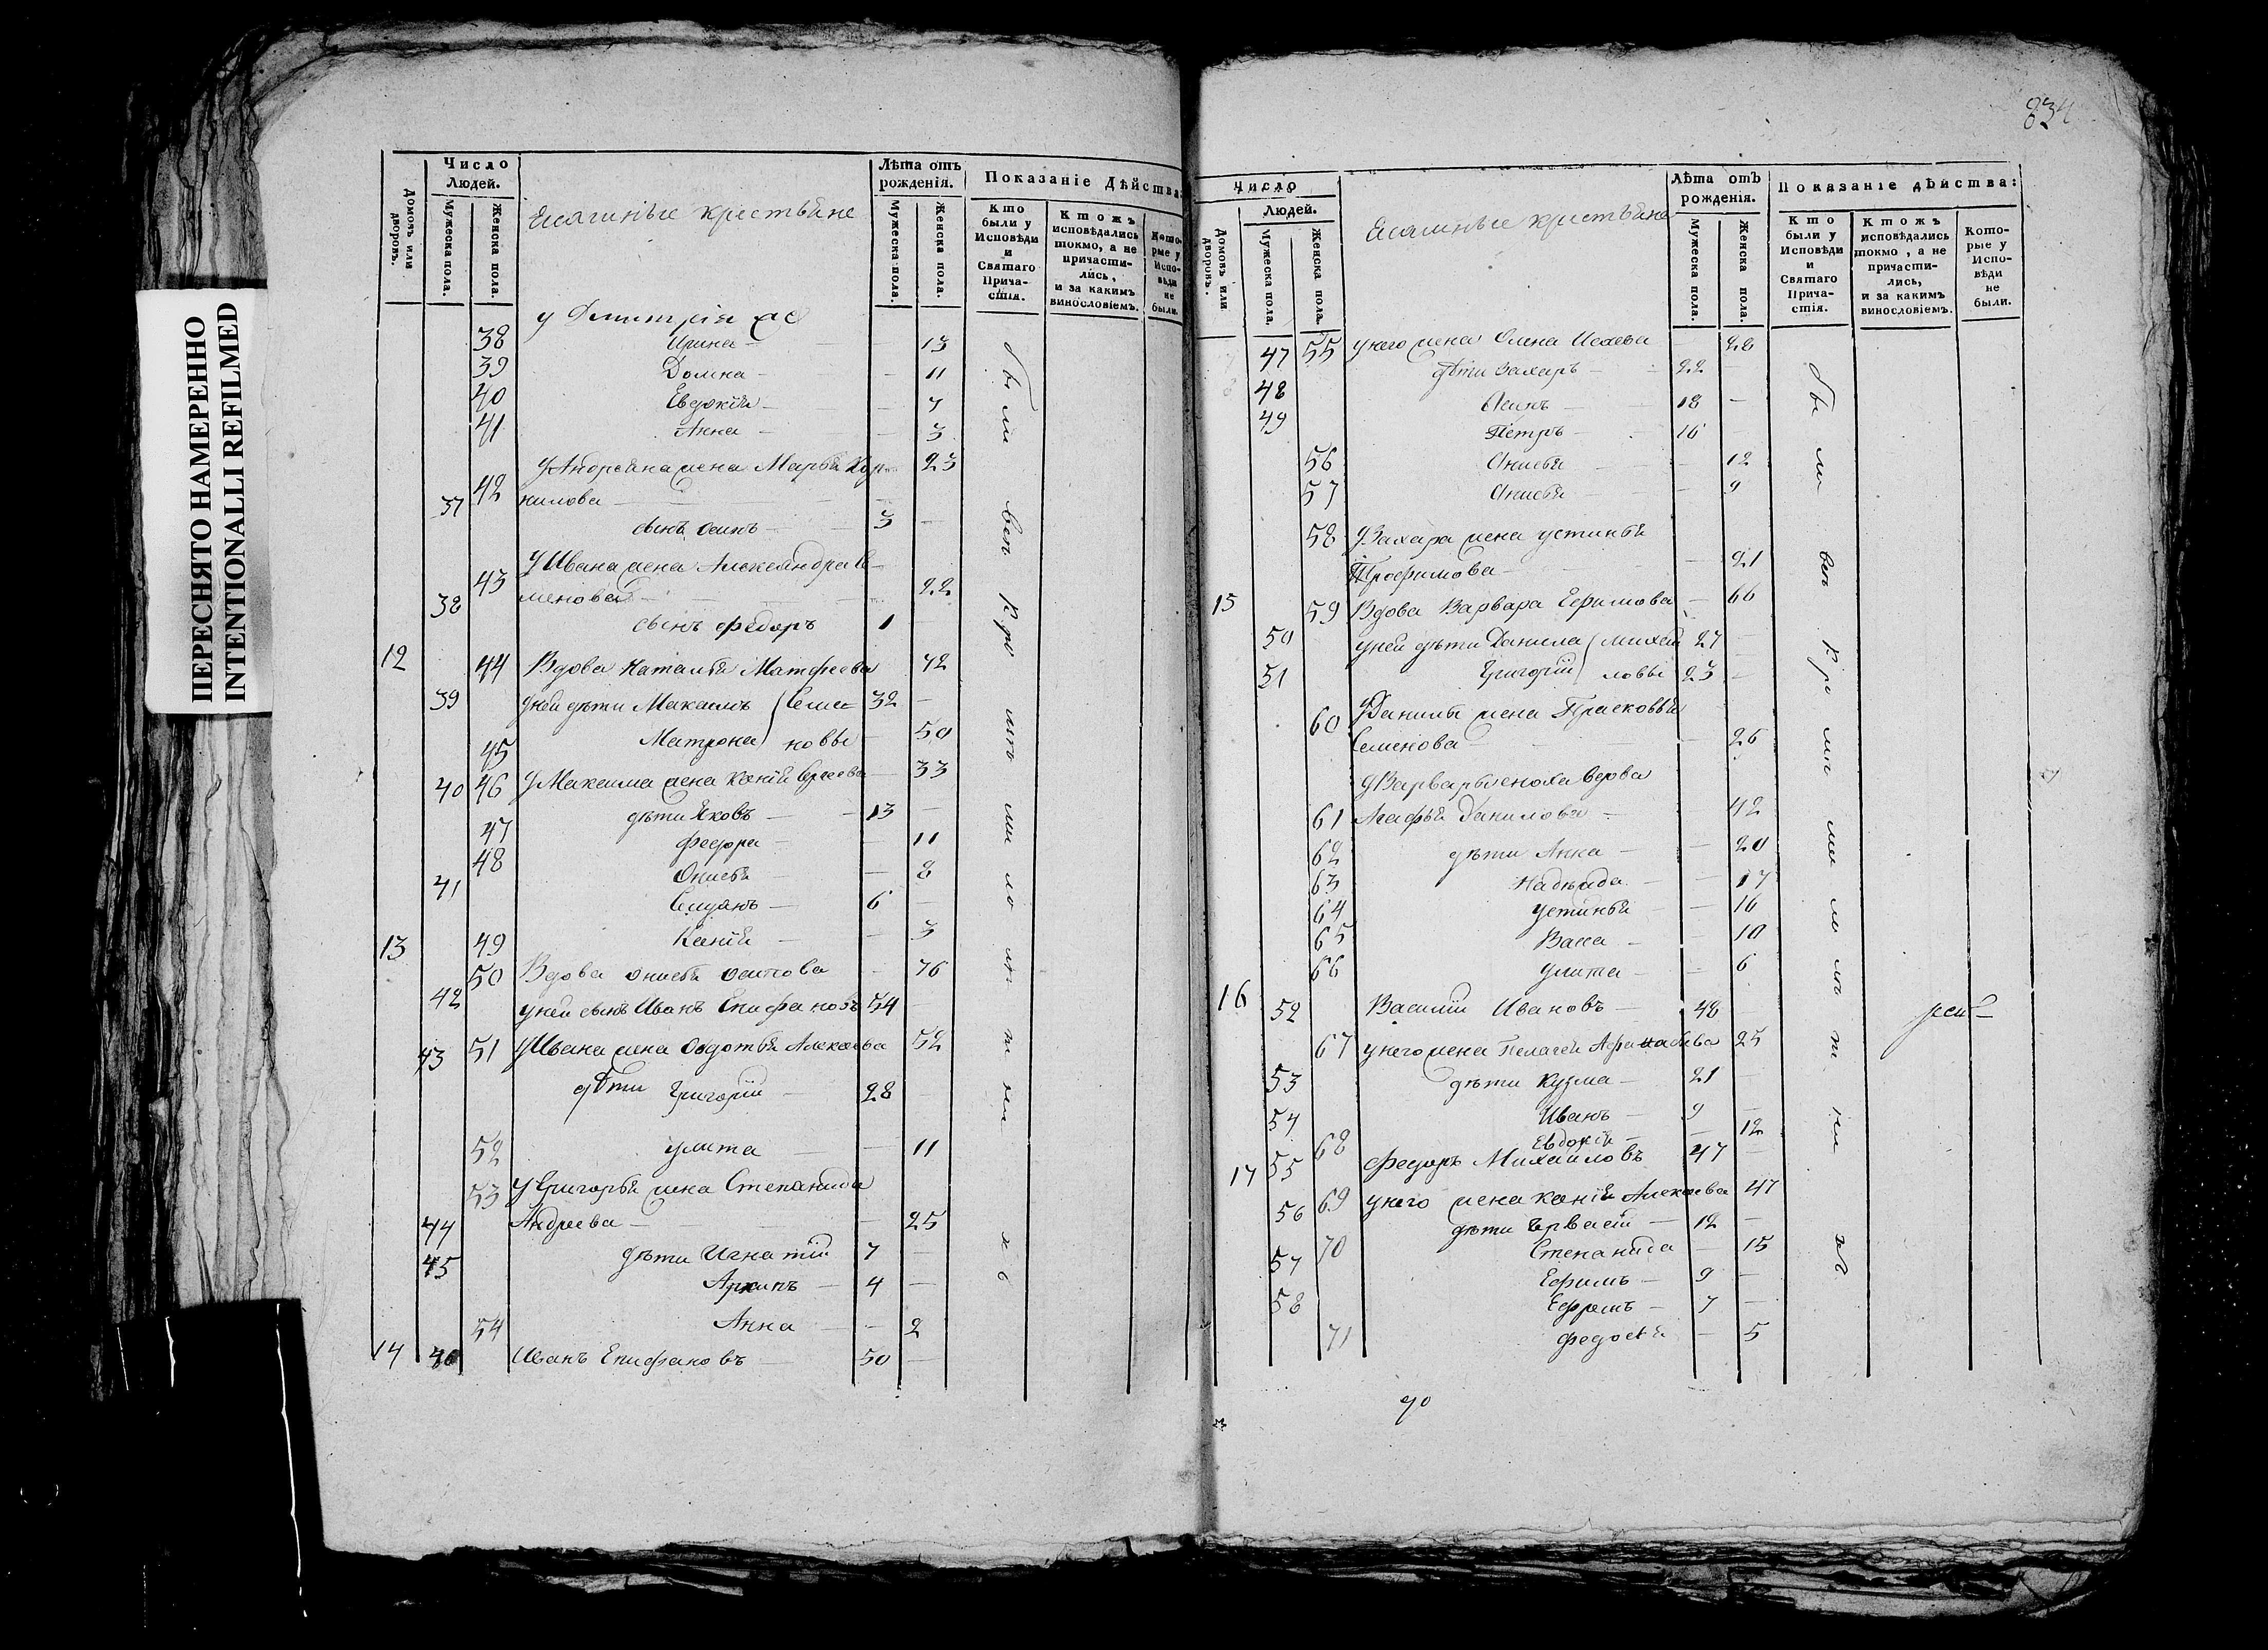 ПЕРЕСНЯТО НАМЕРЕННО
INTENTIONALLI REFILMED
834
Число Людей.
Домовъ или дворовъ.
Мужеска пола.
Женска пола.
крестьяне
Лѣта отъ рожденія.
Мужеска пола.
Женска пола.
Показаніе Дѣйства:
Кто были у Исповѣди и Святаго Причастія.
Ктожъ исповѣдались токмо, а не причастились, и за какимъ винословіемъ.
Которые у Исповѣди не были.
у Дмитрія
38 Ирина 13
39 Домна 11
40 Евдокія 7
41 Анна 3
У Андрея жена Марья Кор 23
42 нилова
37 сынъ Осипъ 3
У Ивана жена Александра Се
43 менова 22
38 сынъ Федоръ 1
12 44 Вдова Наталья Матфеева 72
39 у ней дѣти Максимъ Семе 32
45 Матрона новы 50
46 У Максима жена Ксенія Сергеева 33
40 дѣти Яковъ 13
47 Федора 11
48 Онисья 8
41 Семионъ 6
49 Ксенія 3
13 50 Вдова Онисья Осипова 76
42 у ней сынъ Иванъ Епифановъ 54
51 У Ивана жена Овдотья Алексеева 52
43 дѣти Григорій 28
52 Улита 11
53 У Григорья жена Степанида
Андреева 25
44 дѣти Игнатій 7
45 Архипъ 4
54 Анна 2
14 46 Иванъ Епифановъ 50
Число Людей.
Домовъ или дворовъ.
Мужеска пола.
Женска пола.
крестьяне
Лѣта отъ рожденія.
Мужеска пола.
Женска пола.
Показаніе дѣйства:
Кто были у Исповѣди и Святаго Причастія.
Ктожъ исповѣдались токмо, а не причастились, и за какимъ винословіемъ.
Которые у Исповѣди не были.
55 у него жена Олена Исаева 28
47 дѣти Захаръ 22
48 Осипъ 18
49 Петръ 16
56 Анисья 12
57 Анисья 9
58 У Захара жена Устинья
Трофимова 21
15 59 Вдова Варвара Ефимова 66
50 у ней дѣти Данила михай 27
51 Григорій ловы 23
60 У Данилы жена Прасковья
Семенова 26
У Варвары сноха вдова
61 Агафья Данилова 42
62 дѣти Анна 20
63 Надежда 17
64 Устинья 16
65 Васса 10
66 Улита 6
16 52 Василій Ивановъ 48
67 у него жена Пелагея Афанасьева 25
53 дѣти Кузма 21
54 Иванъ 9
68 Евдокія 12
17 55 Федоръ Михайловъ 47
69 у него жена Ксенія Алексеева 47
56 дѣти Герваси 12
70 Степанида 15
57 Ефимъ 9
58 Ефремъ 7
71 Федосья 5